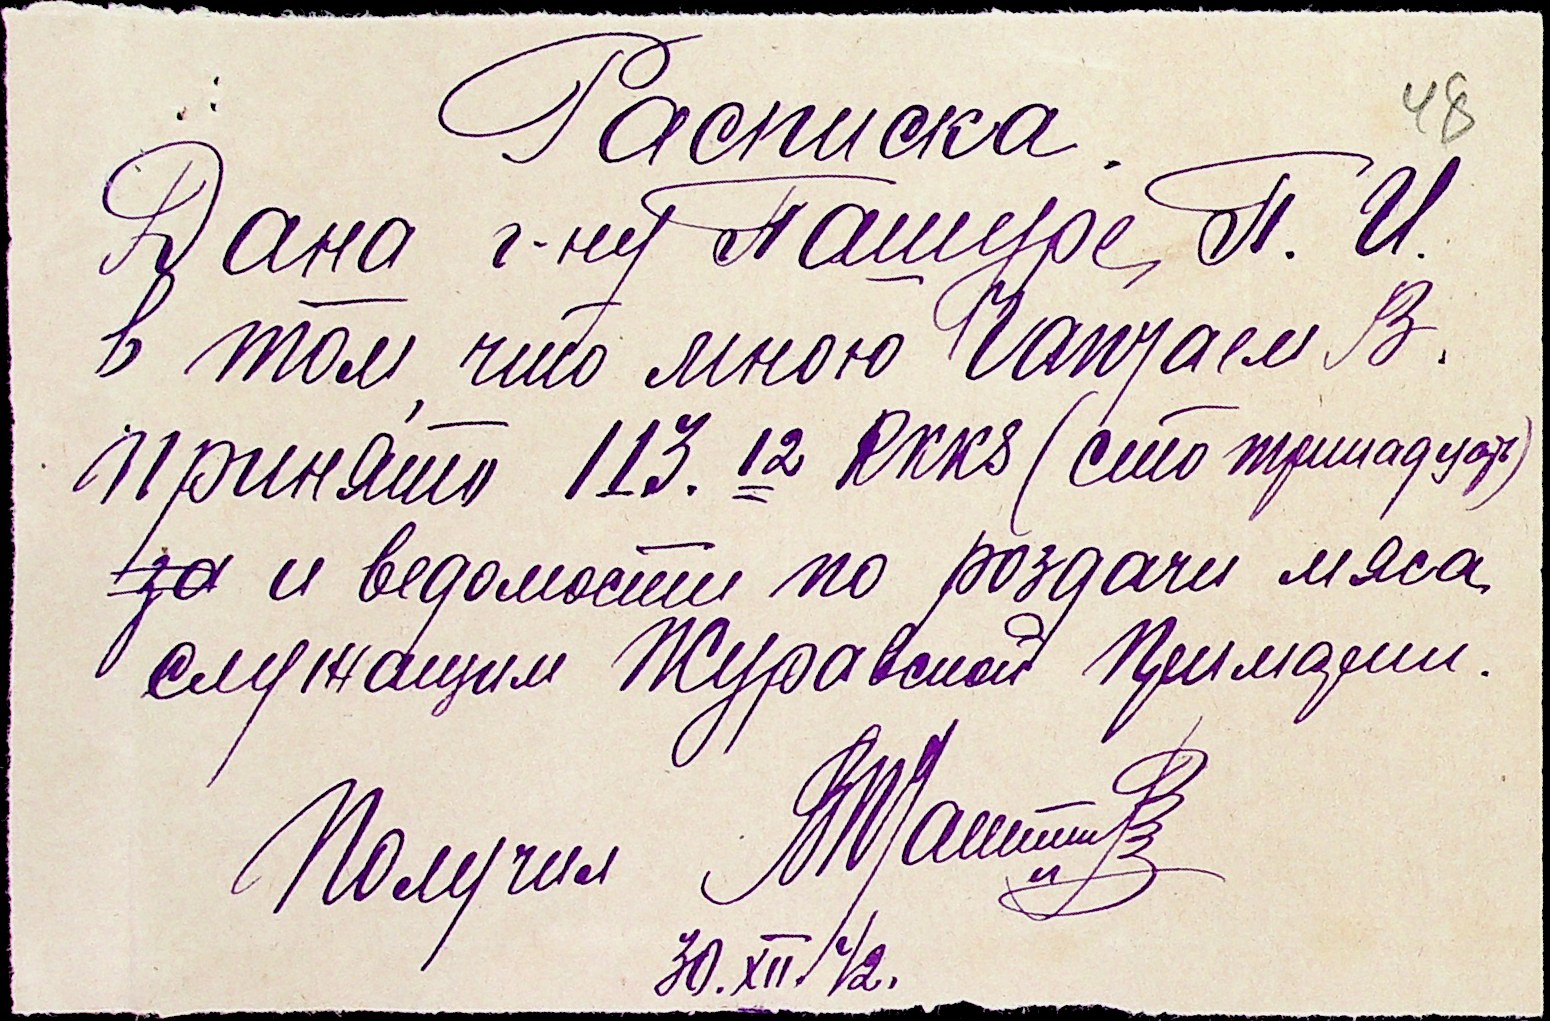 48
Расписка.
Дана г-ну Пашуре П. И.
в том, что мною Чапчаем В.
принято 113. 12 RKKS (сто тринадцать)
за и ведомости по роздачи мяса
служащим Журавской Примарии.
Получил
30.XII.42.